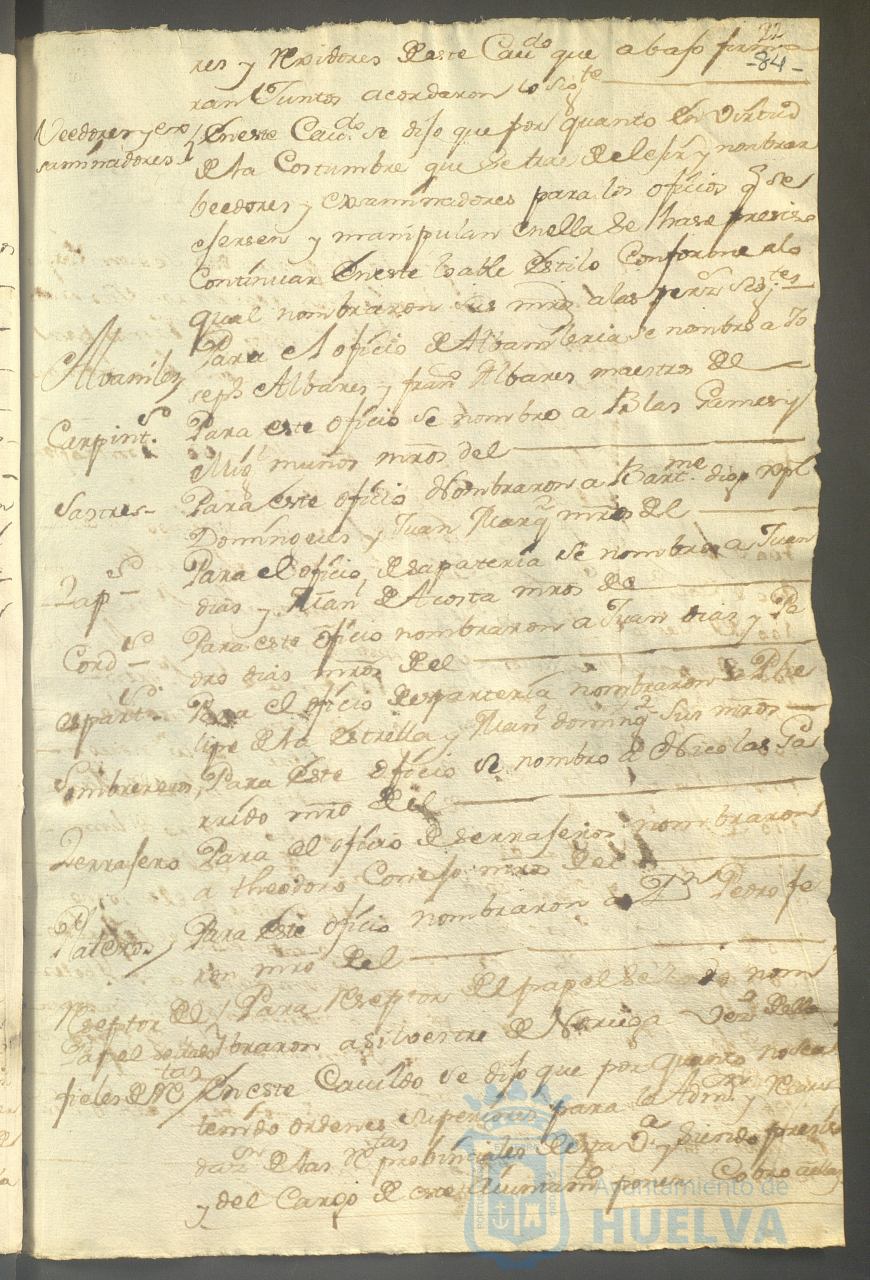 92
-84-
res y Rexidores deeste Cavdo que abajo firma
ran Juntos acordaron lo sigte
Veedores y exa
saminadores
En este Cavdo se dijo que por quanto En Virtud
de la Costumbre que se trae de elejir y nombrar
beedores y examinadores para los oficios q se
ejersen y manipulan en ella se hase presiso
Continuar En este loable Estilo Conforme alo
qual nombraron sus mrds a las sigtes
Alvaniles
Para el oficio de Albanileria se nombro a Jo
seph Albares y franco Albares maestros del
Carpints
Para este oficio se nombro a Blas y
Migl muños mros del
Sastres
Para este oficio Nombraron a Bartme
Domingues y Juan Marqz mros del
Zaps
Para el oficio de sapateria se nombro a Juan
dias y Manl de Acosta mros de
Cords
Para este oficio nombraron a Juan dias y Pe
dro dias mros del
esparts
Para el oficio de esparteria nombraron a Phe
lipe de la Estrella y Manl domingz sus mros
Sombrereros
Para Este oficio se nombro a Nicolas Ga
rrido mro del
Zerrajero
Para el oficio de serrajeros nombraron
a theodoro Correjo mro del
Plateros
Para este oficio nombraron a Dn Pedro fe
rer mro del
Reseptor del
Papel sellado
Para Reseptor del papel sellado nom
braron a silvestre de Noriega Vezo della
fieles de Rtas
En este Cavildo se dijo que por quanto no sea
tenido ordenes superiores para la Admon y Recau
daon de las Rtas probinciales de esta Va y siendo presiso
y del Cargo de este Aiuntamto poner Cobro a ellas
Ayuntamiento de
HUELVA